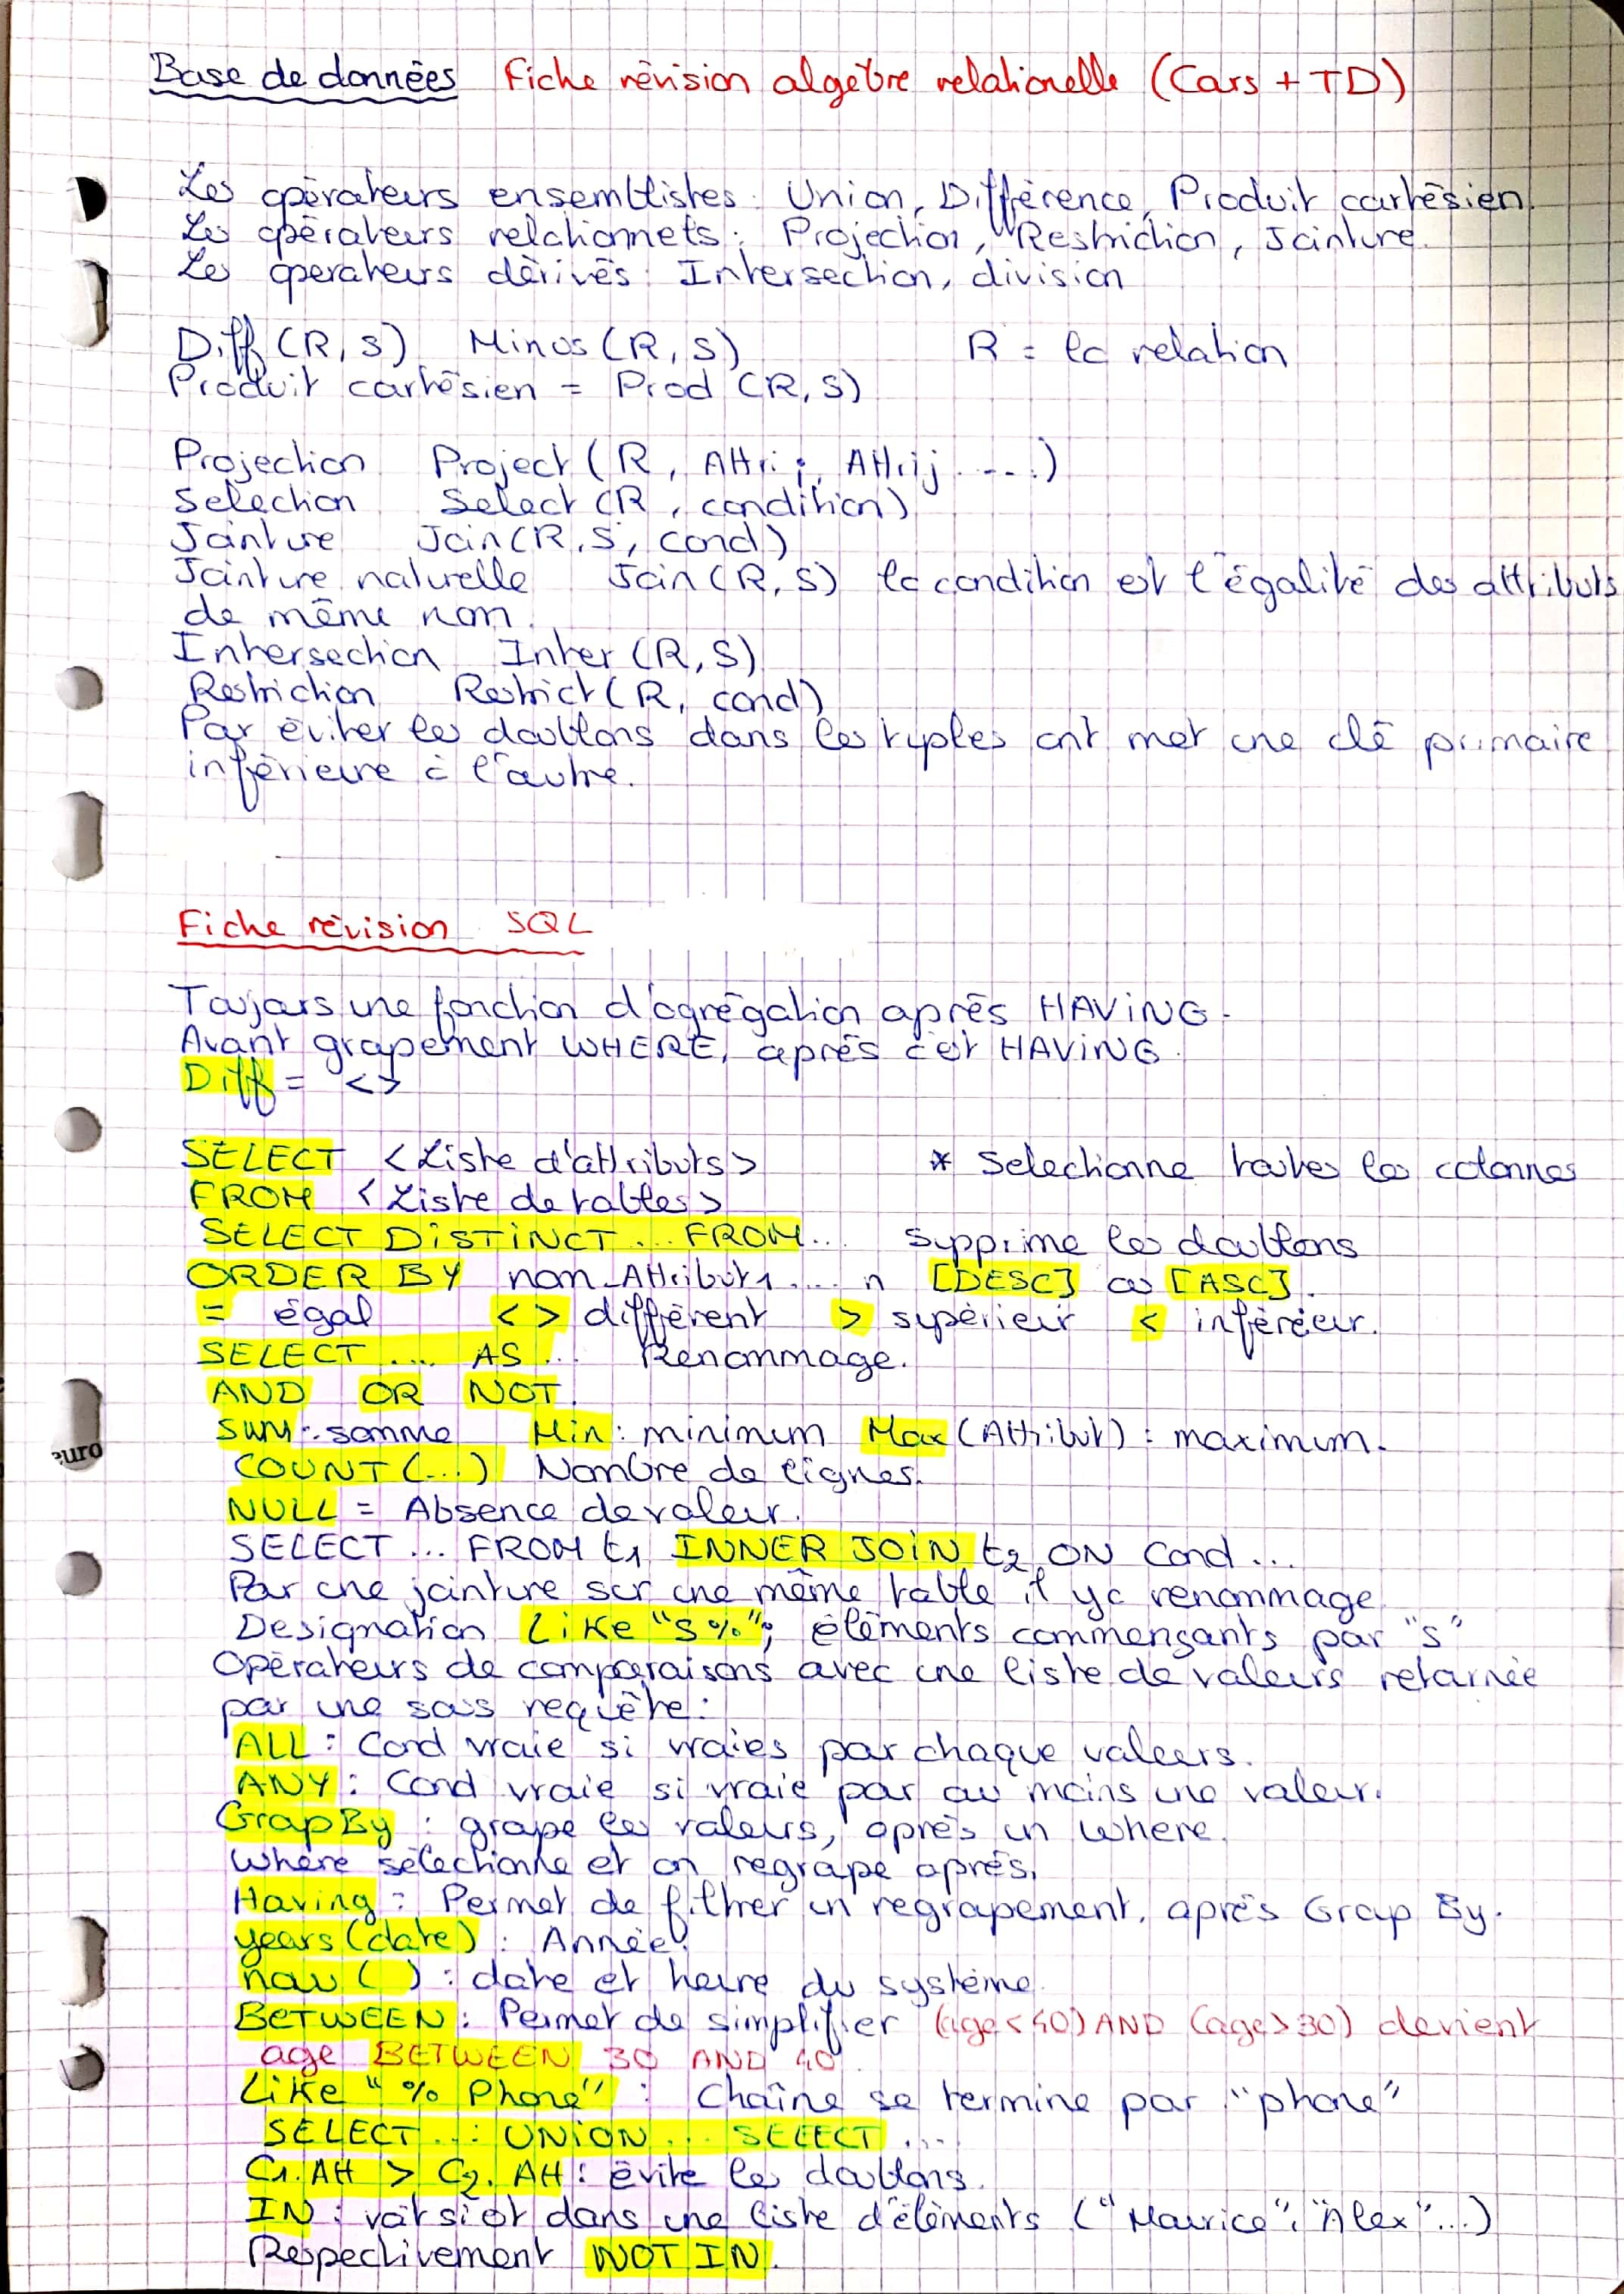 Base de données Fiche révision algèbre relationelle (Cours + TD)
Les opérateurs ensemblistes : Union, Différence, Produit cartésien.
Les opérateurs relationnels : Projection, Restriction, Jointure.
Les operateurs dérivés : Intersection, division
Diff (R, S) Minus (R, S) R = la relation
Produit cartésien = Prod (R, S)
Projection Project (R, Attri i, Attrij ....)
Selection Select (R, condition)
Jointure Join (R, S, cond)
Jointure naturelle Join (R, S) la condition est l'égalité des attributs
de même nom.
Intersection Inter (R, S)
Restriction Restrict (R, cond)
Pour éviter les doublons dans les tuples ont met une clé primaire
inférieure à l'autre.
Fiche révision SQL
Toujours une fonction d'agrégation après HAVING.
Avant groupement WHERE, après c'est HAVING.
Diff = <>
SELECT <Liste d'attributs> * selectionne toutes les colonnes
FROM <Liste de tables>
SELECT DISTINCT ... FROM ... supprime les doublons
ORDER BY nom_Attribut1 .... n [DESC] ou [ASC].
= égal <> différent > supérieur < inférieur.
SELECT .... AS ... Renommage.
AND OR NOT.
SUM : somme Min : minimum Max (Attribut) : maximum.
COUNT (...) Nombre de lignes.
NULL = Absence de valeur.
SELECT ... FROM t1 INNER JOIN t2 ON Cond ...
Pour une jointure sur une même table il y a renommage
Designation Like "S%"; éléments commençants par "S"
Opérateurs de comparaisons avec une liste de valeurs retournée
par une sous requête :
ALL : Cond vraie si vraies pour chaque valeurs.
ANY : Cond vraie si vraie pour au moins une valeur.
Group By : groupe les valeurs, après un where.
Where sélectionne et on regroupe après.
Having : Permet de filtrer un regroupement, après Group By.
years (date) : Année.
now ( ) : date et heure du système.
BETWEEN : Permet de simplifier (age < 40) AND (age > 30) devient
age BETWEEN 30 AND 40.
Like "% Phone" : Chaîne se termine par "phone"
SELECT ... UNION ... SELECT ...
C1.Att > C2.Att : évite les doublons.
IN : voit si est dans une liste d'éléments ("Maurice", "Alex"...)
Respectivement NOT IN.
euro